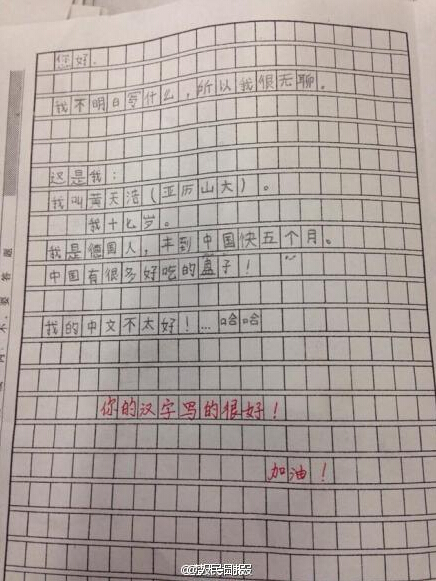 您好.
我不明白写什么，所以我很无聊。
这是我：
我叫黄天浩（亚历山大）。
我十七岁。
我是德国人，来到中国快五个月。
中国有很多好吃的盒子！
我的中文不太好！...哈哈
你的汉字写的很好！
加油！
答题
不要